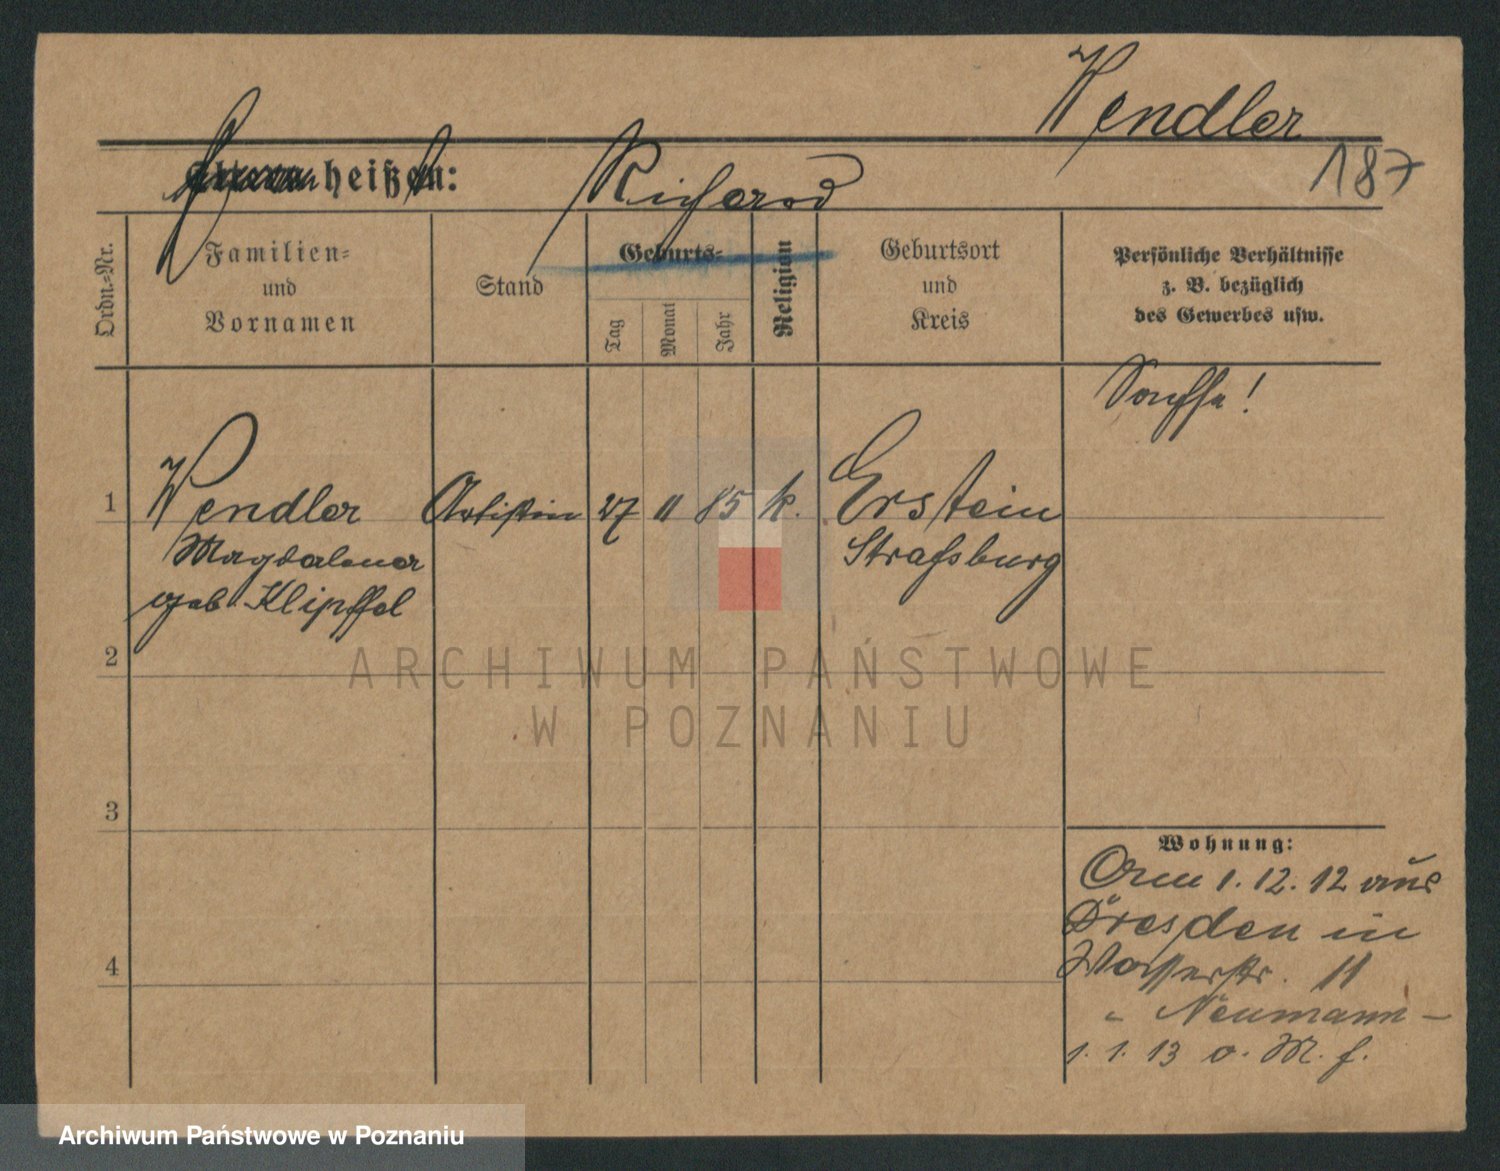 Wendler
187
heißt:
Richard
Ordn.-Nr.
Familien-
und
Vornamen
Stand
Geburts-
Tag
Monat
Jahr
Religion
Geburtsort
und
Kreis
Persönliche Verhältnisse
z. B. bezüglich
des Gewerbes usw.
1
Wendler
Magdalena
geb. Klipffel
Artistin
27
11
85
k.
Erstein
Strassburg
2
3
4
Wohnung:
1. 12. 12 aus
Dresden in
Wasserstr. 11
Neumann –
1. 1. 13 o. M. f.
ARCHIWUM PAŃSTWOWE
W POZNANIU
Archiwum Państwowe w Poznaniu